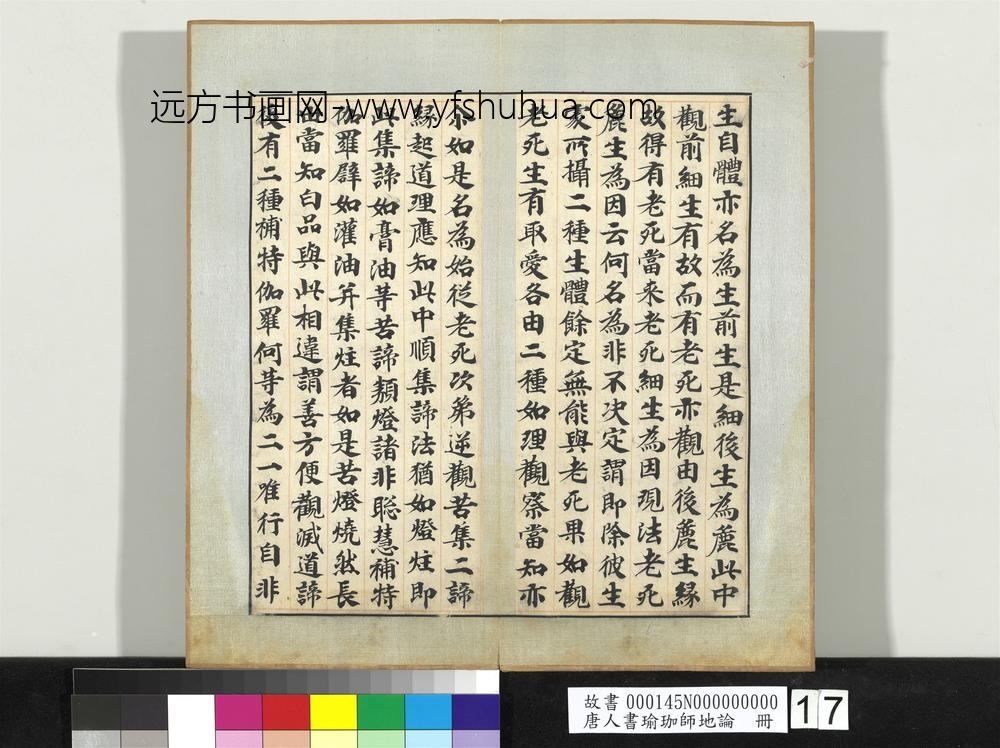 远方书画网-www.yfshuhua.com
生自體亦名為生前生是細後生為麁此中
觀前細生有故而有老死亦觀由後麁生緣
故得有老死當来老死細生為因現法老死
麁生為因云何名為非不决定謂即除彼生
支所攝二種生體餘定無能與老死果如觀
老死生有取愛各由二種如理觀察當知亦
尒如是名為始從老死次第逆觀苦集二諦
緣起道理應知此中順集諦法猶如燈炷即
此集諦如膏油等苦諦類燈諸非聡慧補特
伽羅譬如灌油并集炷者如是苦燈燒然長
當知白品與此相違謂善方便觀滅道諦
復有二種補特伽羅何等為二一唯行自非
故書 000145N000000000
唐人書瑜珈師地論 冊
17